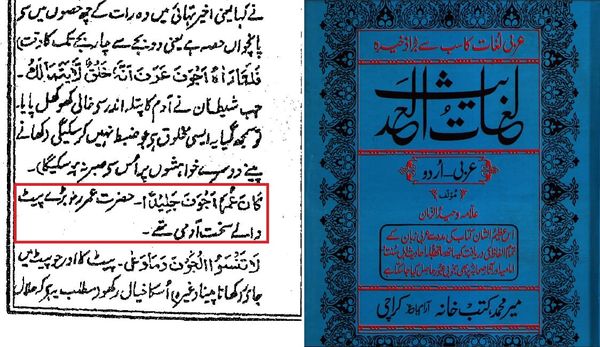 نے کہا یعنی اخیر تہائی میں وہ رات کے چھ حصوں میں کا
پانچواں حصہ ہے یعنی دو بجے سے چار بجے تک کا وقت)
فَلَمَّا رَاٰهُ اَجْوَفَ عَرَفَ اَنَّهٗ خَلْقٌ لَّا يَتَمَالَكُ۔
جب شیطان نے آدم کا پتلہ اندر سے خالی کھوکھل پایا۔
تو سمجھ گیا یہ ایسی مخلوق ہے جو ضبط نہیں کر سکیگی (کھانے
پینے دوسرے خواہشوں پر اس کو صبر نہ ہو سکیگا)۔
كَانَ عُمَرُ اَجْوَفَ جَلِيْدًا۔ حضرت عمر رضہ بڑے پیٹ
والے سخت آدمی تھے۔
لَا تَنْسَوُا الْجَوْفَ وَمَا وَعٰى۔ پیٹ کا اور جو پیٹ میں
جائے (کھانا پینا وغیرہ) اُسکا خیال رکھو (مطلب یہ ہے کہ حلال
عربی لغات کا سب سے بڑا ذخیرہ
لغات الحدیث
عربی - اُردو
مؤلف
علامہ وحید الزمان
میر محمد، کتب خانہ آرام باغ کراچی